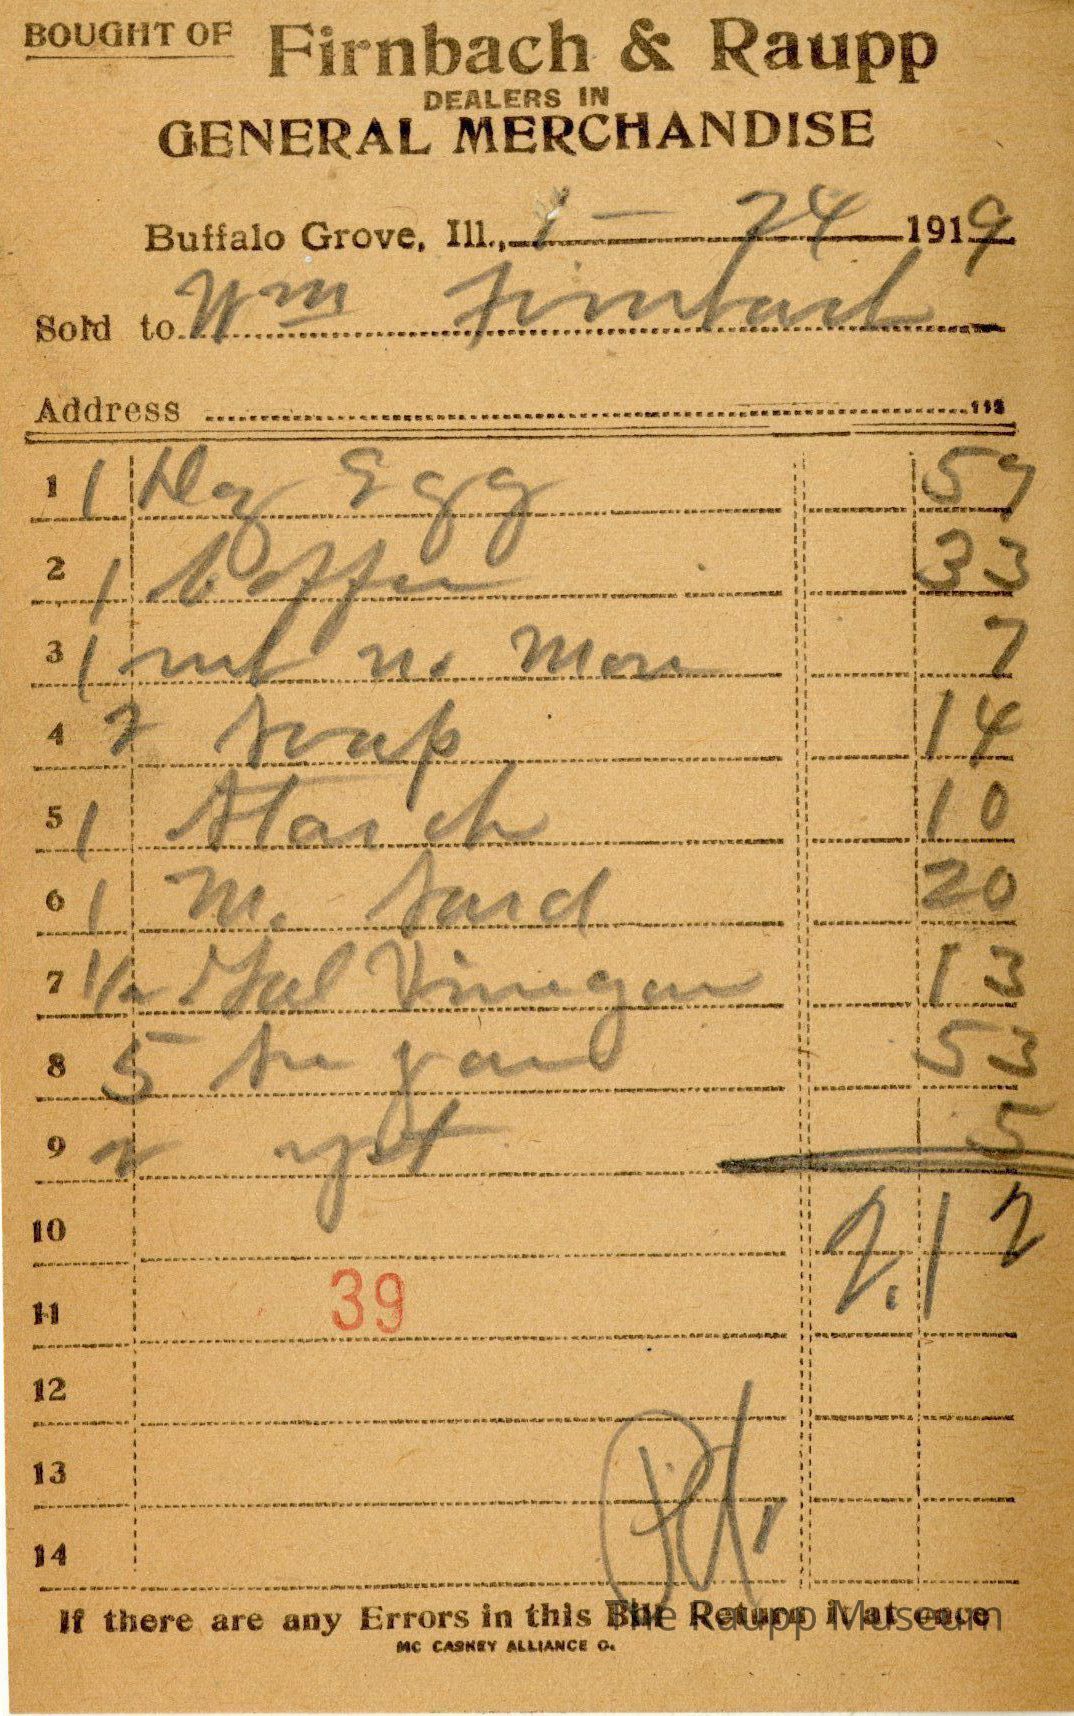 BOUGHT OF Firnbach & Raupp
DEALERS IN
GENERAL MERCHANDISE
Buffalo Grove, Ill., 1 - 24 1919
Sold to Wm Firnbach
Address
1 1 Dz Egg 59
2 1 Coffee 33
3 1 no More 7
4 2 Soap 14
5 1 Starch 10
6 1 M. Sard 20
7 1/2 Gal Vinegar 13
8 5 53
9 2 yst 5
10 2.12
11 39
12
13
14 Pd.
If there are any Errors in this Bill Return it at once
MC CASKEY ALLIANCE O.
The Raupp Museum